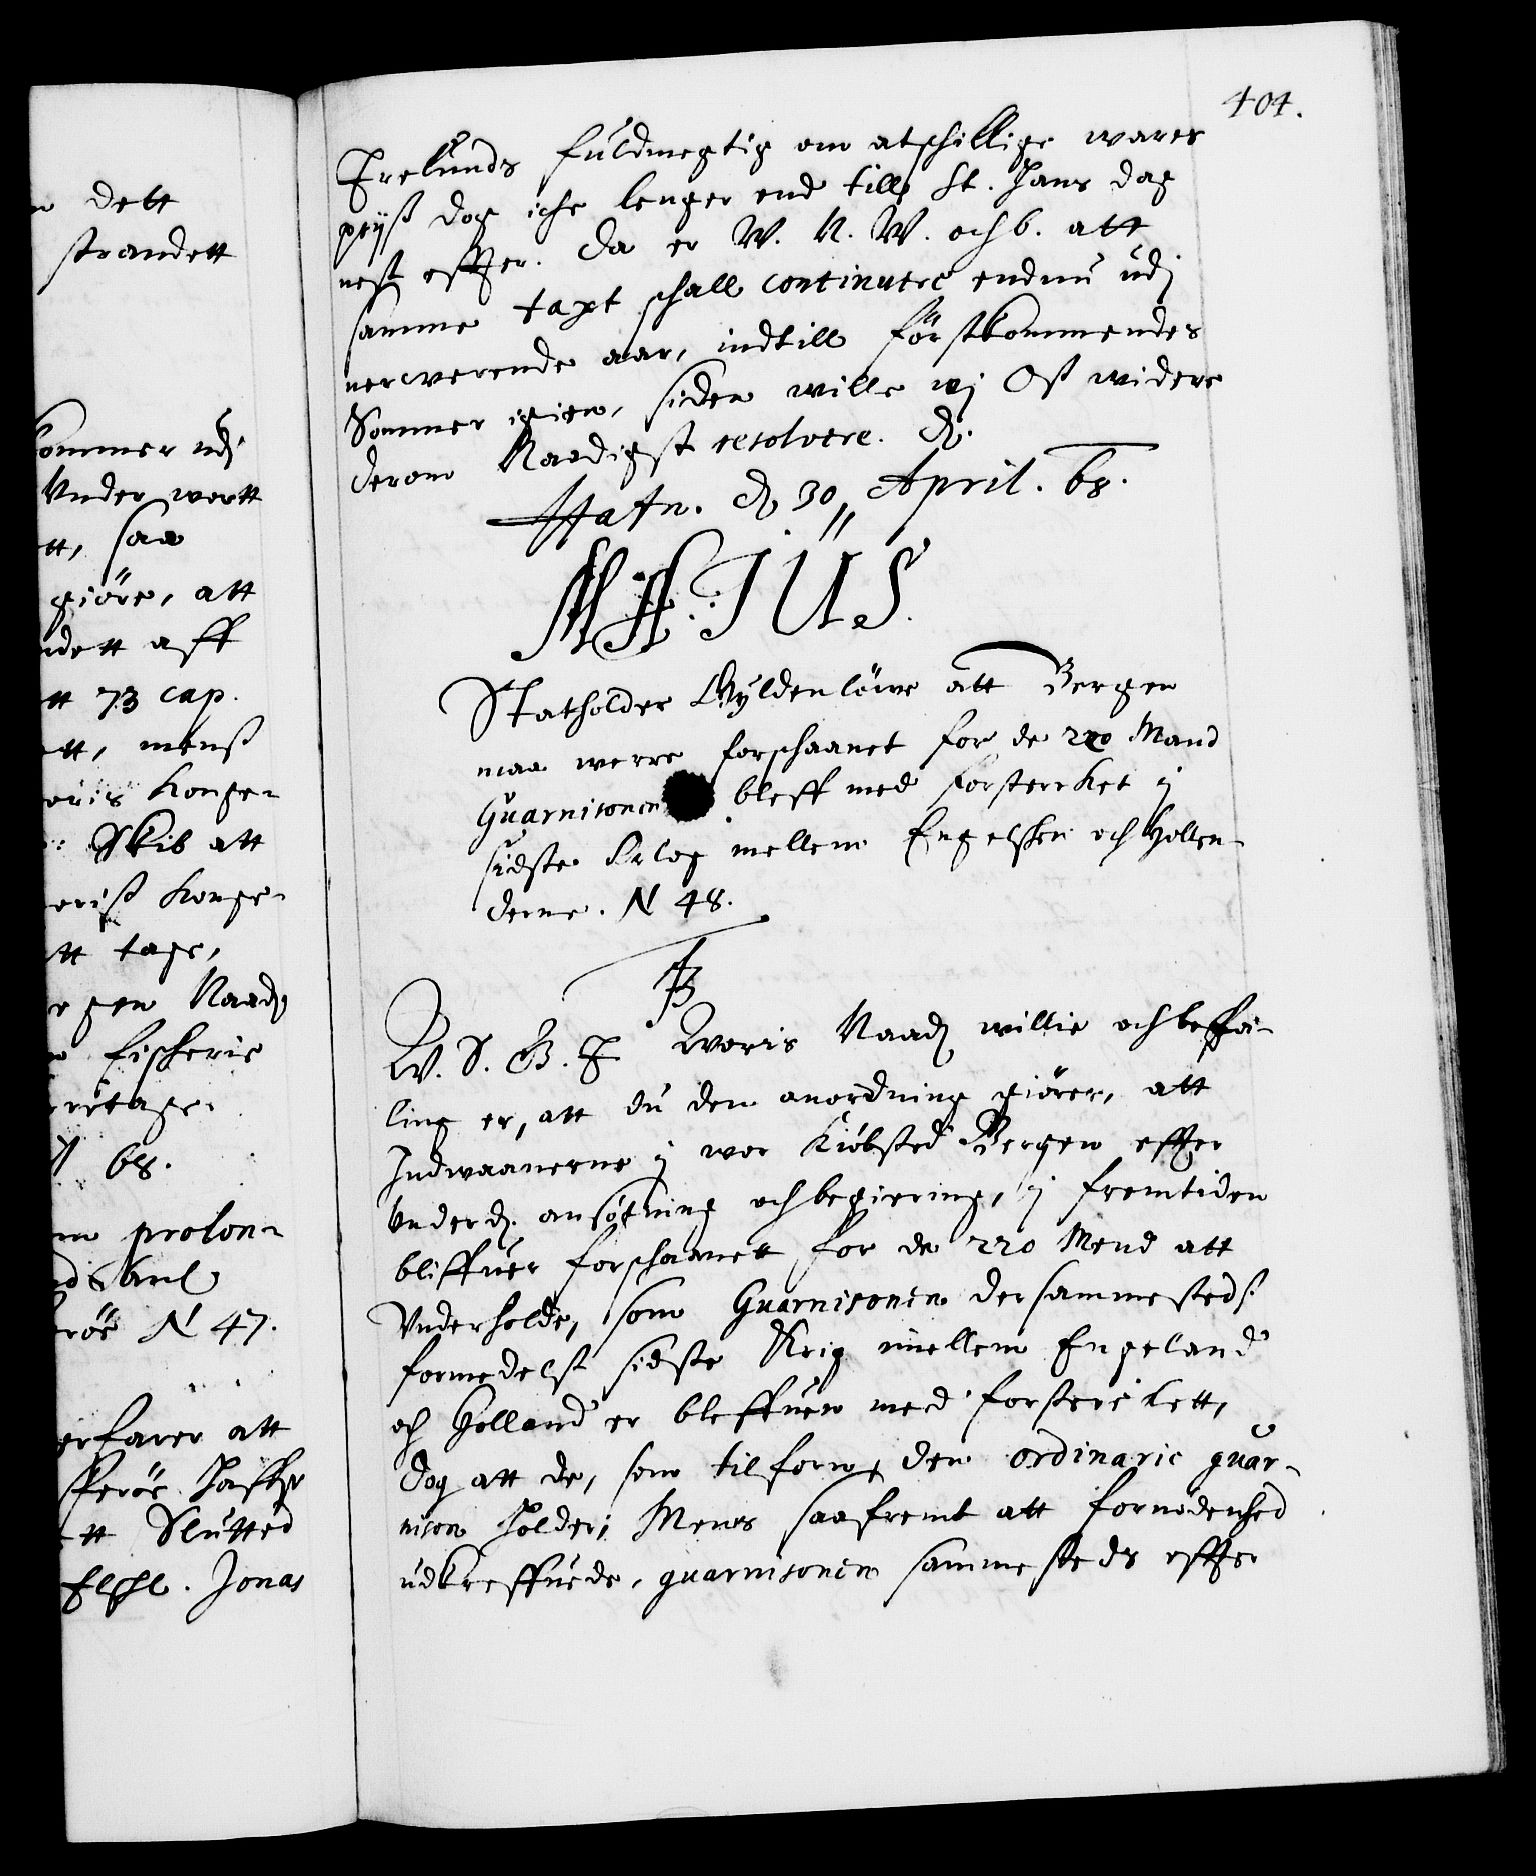 404.
Irelunds fuldmegtig om atschillige wares
prijß dog iche lenger end till St. Hans dag
nest effter. Da er W. N. W. och b. att
samme taxt schall continuere endnu udj
nerwerende aar, indtill förstkommendes
Sommer igien, siden wille wj Oß widere
derom Naadigst resolvere. D.
Hafn. d. 30 April. 68.
MAJUS.
Statholder Gyldenlöwe att Bergen
maa werre forschaanet for de 220 Mand
Guarnisonen bleff med forsterrket j
sidste Orlog mellem Engelschen och Hollen-
derne. N 48.
W. S. G. T. Woris Naad willie och beffa-
ling er, att du den anordning giörer, att
Indwaanerne j wor Kiöbsted Bergen effter
Underd. ansögning och begiering, j fremtiden
bliffuer forschaanett for de 220 Mend att
Underholde, som Guarnisonen dersammesteds
formedelst sidste Krig imellem Engeland
och Holland er bleffuen med forsterckett,
dog att de, som tilforne den ordinarie guar-
nison holder; Mens saafremt att fornödenhed
udkreffuede, guarnisonen sammesteds effter
dett
strandett
Sommer udj
Under wortt
tt, saa
giöre, att
ndett aff
tt 73 cap.
ett, menß
woris Konge-
Skib att
woriß Konge-
tt tage,
gen Naad
fischerie
68.
om prolon-
N 47.
erfarer att
fferöe Haffver
tt Sluttet
Jonas